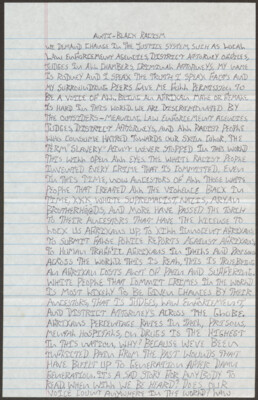 ANTI-BLACK RACISM
WE DEMAND CHANGE IN THE JUSTICE SYSTEM SUCH AS LOCAL
LAW ENFORCEMENT AGENCIES, DISTRICT ATTORNEY OFFICES,
JUDGES IN ALL CHAMBERS, CRIMINAL ATTORNEYS. MY NAME
IS RODNEY AND I SPEAK THE TRUTH I SPEAK FACTS AND
MY SURROUNDING PEERS GAVE ME FULL PERMISSION TO
BE A VOICE OF ALL. BEING AN AFRIKAN MALE OR FEMALE
IS HARD IN THIS WORLD WE ARE DISCRIMINATED BY
THE OUTSIDERS-MEANING LAW ENFORCEMENT AGENCIES
JUDGES, DISTRICT ATTORNEYS, AND ALL RACIST PEOPLE
WHO CONSUME HATRED TOWARDS OUR SKIN COLOR. THE
TERM "SLAVERY" NEVER STOPPED IN THIS WORLD
THIS WILL OPEN ALL EYES THE WHITE RACIST PEOPLE
INVENTED EVERY CRIME THAT IS COMMITTED. EVEN
IN THIS TIME, NOW ANCESTORS OF ALL THESE WHITE
PEOPLE THAT CREATED ALL THE VIOLENCE BACK IN
TIME, KKK, WHITE SUPREMACIST NAZIS, ARYAN
BROTHERHOODS, AND MORE HAVE PASSED THE TORCH
TO THEIR ANCESTORS THAT HAVE THE LICENSE TO
LOCK US AFRIKANS UP, TO KILL INNOCENT AFRIKANS
TO SUBMIT FALSE POLICE REPORTS AGAINST AFRIKANS
TO HUMAN TRAFFIC AFRIKANS IN JAILS AND PRISONS
ACROSS THE WORLD THIS IS REAL THIS IS
AN AFRIKAN EXISTS ALOT OF PAIN AND SUFFERING
WHITE PEOPLE THAT COMMIT CRIMES IN THE WORLD
IS MOST LIKELY TO BE GIVEN CHANCES BY THEIR
ANCESTORS THAT IS JUDGES, LAW ENFORCEMENT
AND DISTRICT ATTORNEYS ACROSS THE GLOBE.
AFRIKANS PERCENTAGE RATES IN JAIL, PRISONS
MENTAL HOSPITALS, ON DRUGS IS THE HIGHEST
IN THIS NATION, WHY? BECAUSE WE'VE BEEN
INFLICTED PAIN FROM THE PAST WOUNDS THAT
HAVE BUILT UP TO GENERATION AFTER DAMN
GENERATION. IT'S A SAD STORY FOR ANYBODY TO
READ WHEN WILL WE BE HEARD? DOES OUR
VOICE COUNT ANYWHERE IN THE WORLD? HOW